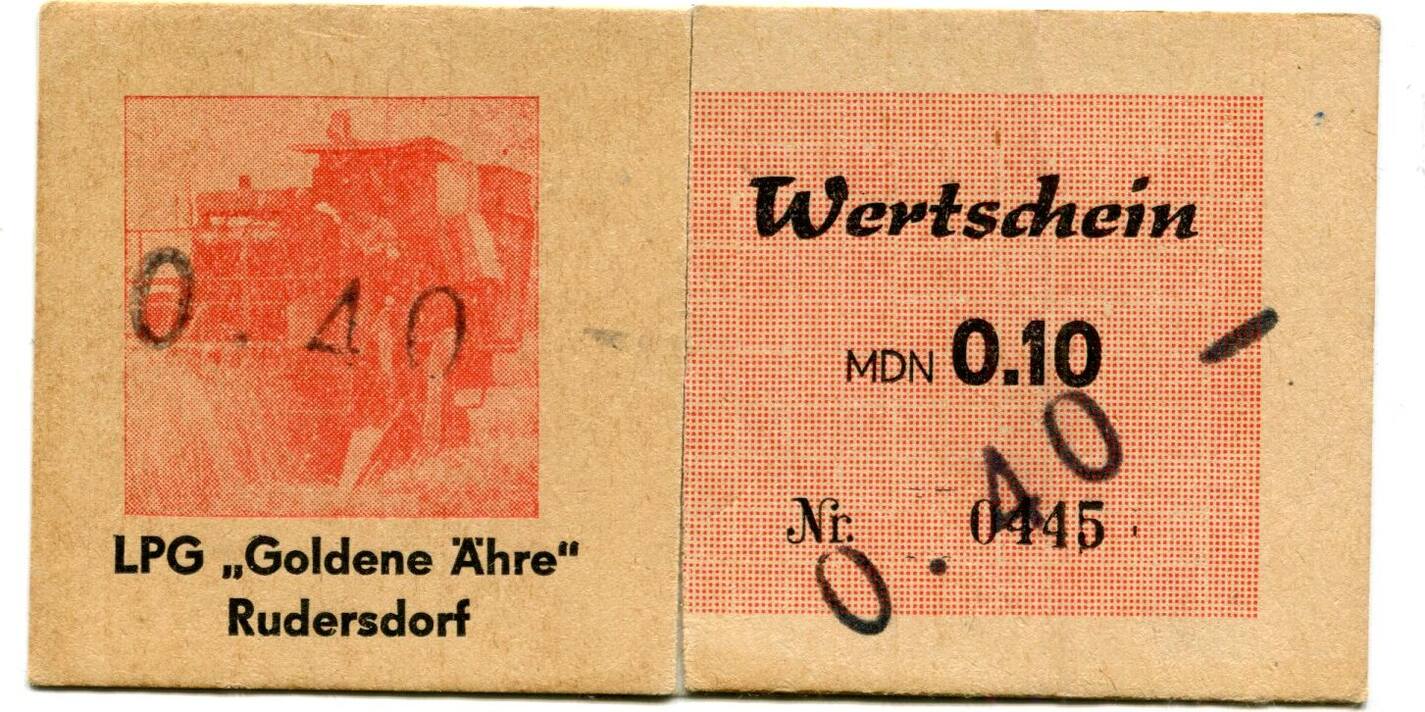 0.40
LPG „Goldene Ähre“
Rudersdorf
Wertschein
MDN 0.10
Nr. 0445
0.40 -